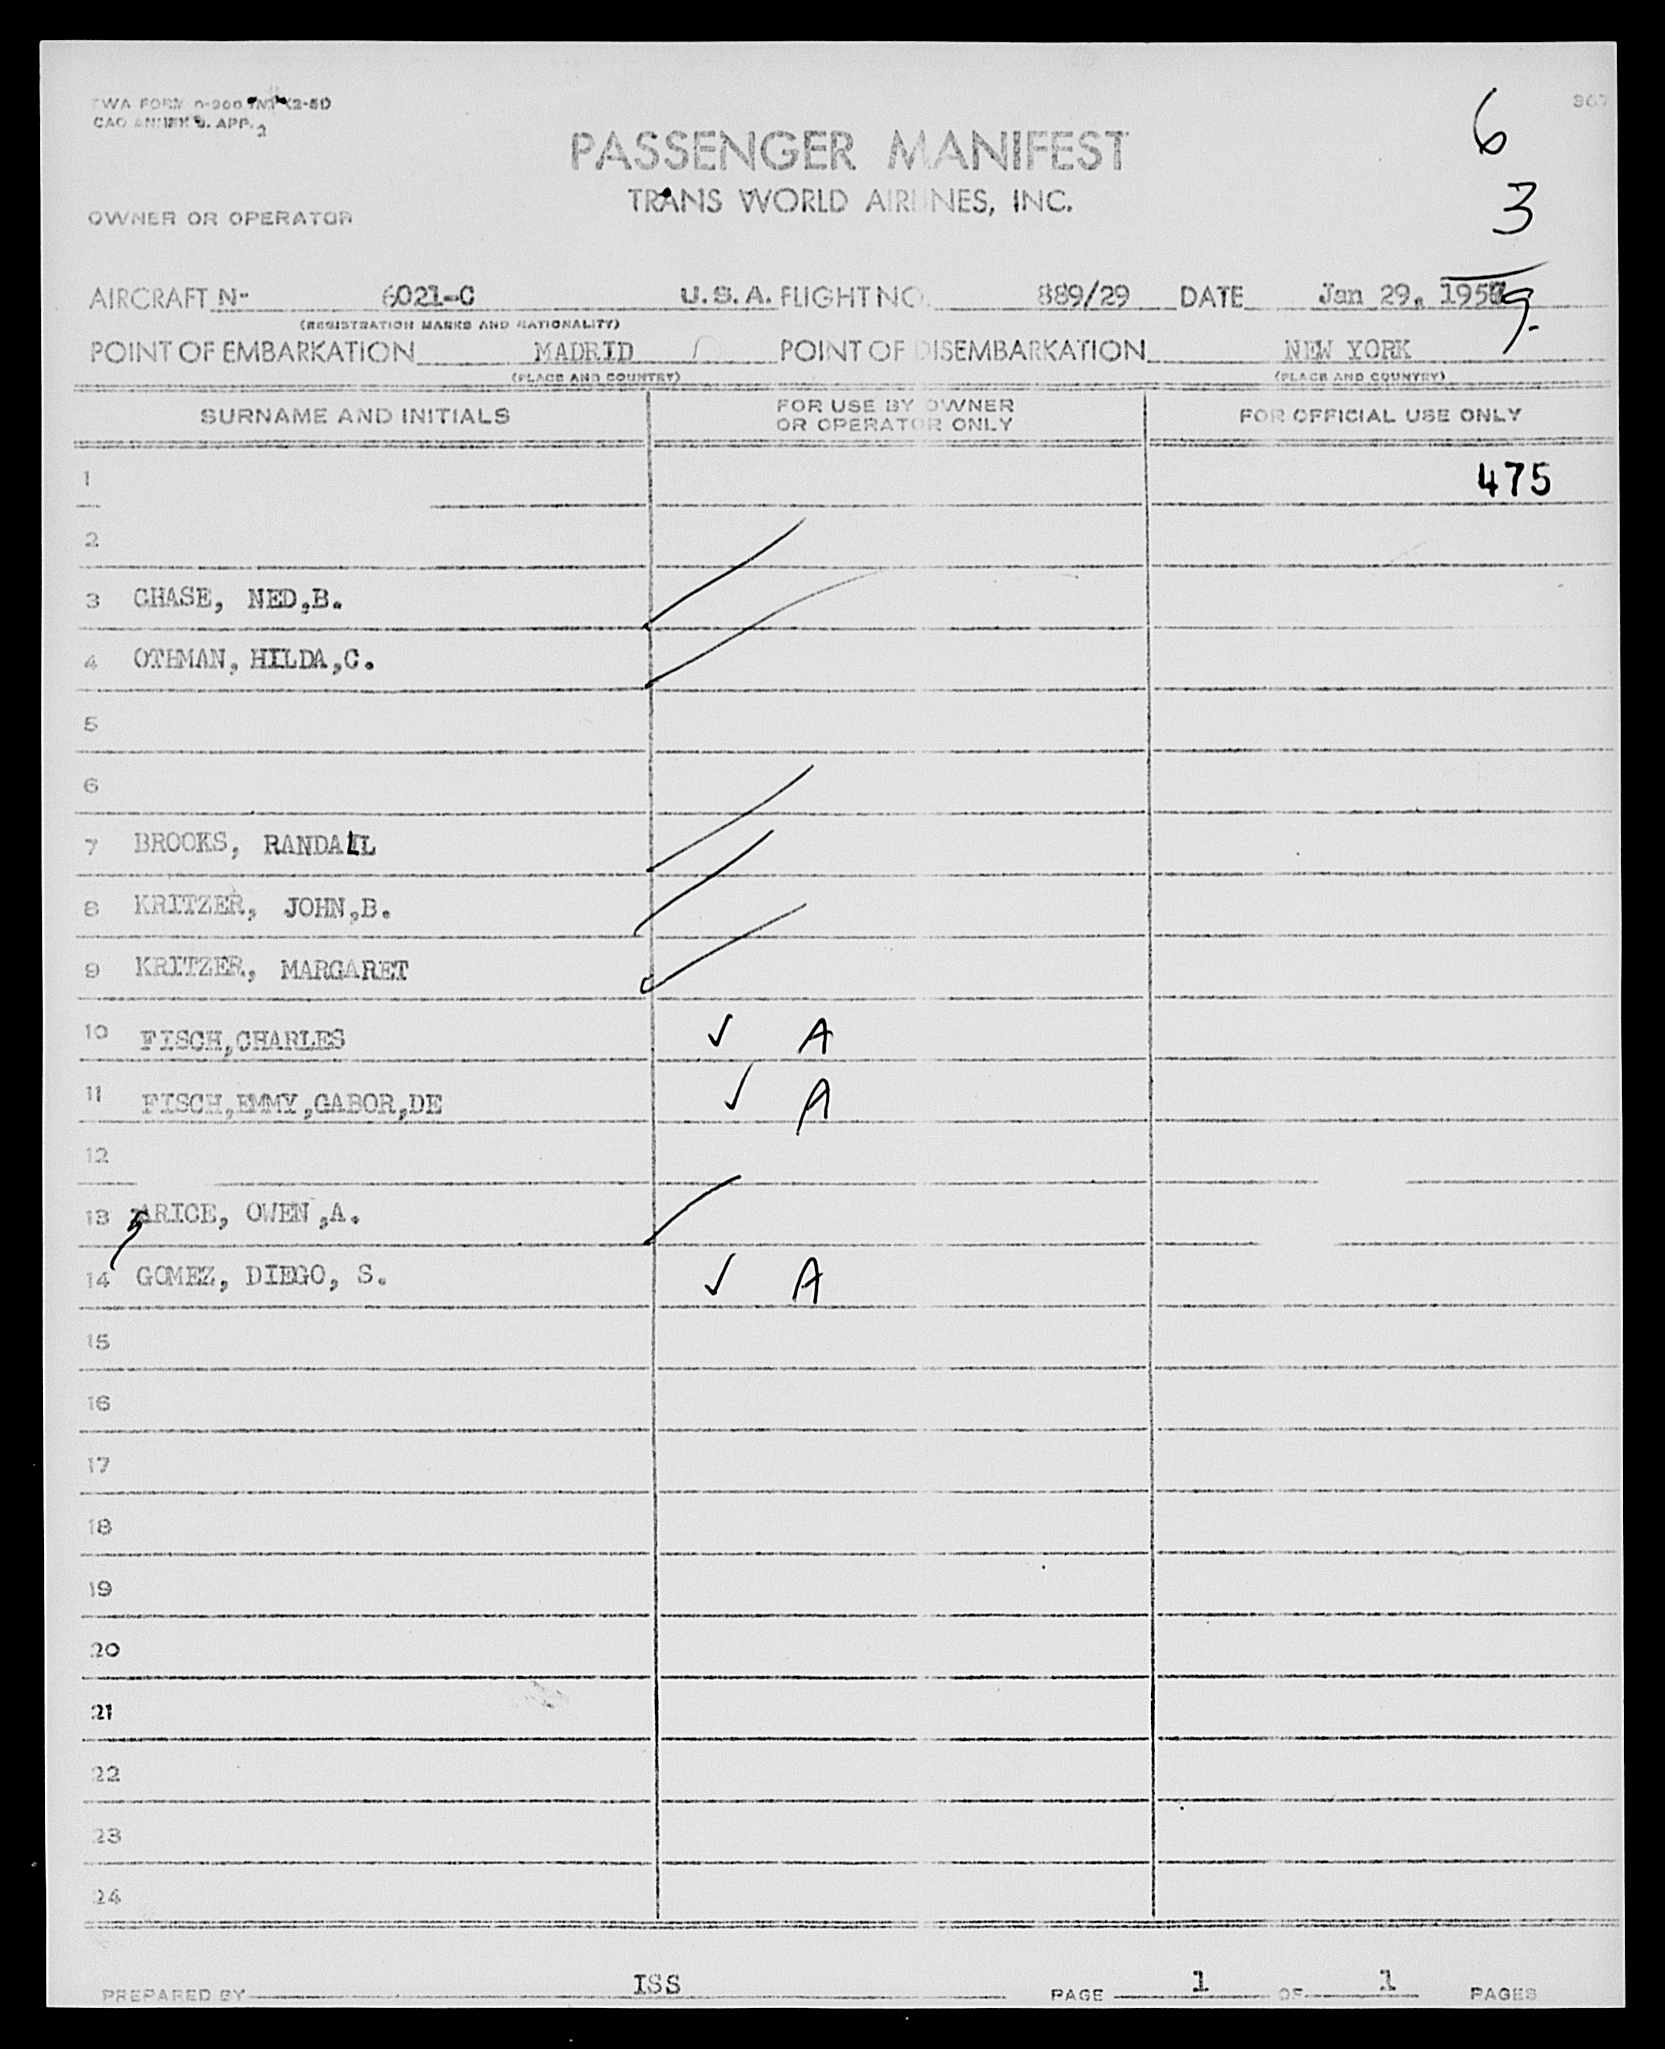 TWA FORM 0-200 INT (2-51)
CAO ANNEX 9. APP. 2
6
367
PASSENGER MANIFEST
3
TRANS WORLD AIRLINES, INC.
OWNER OR OPERATOR
AIRCRAFT N- 6021-C U.S.A. FLIGHT NO. 889/29 DATE Jan 29, 195
9.
(REGISTRATION MARKS AND NATIONALITY)
POINT OF EMBARKATION MADRID POINT OF DISEMBARKATION NEW YORK
(PLACE AND COUNTRY) (PLACE AND COUNTRY)
SURNAME AND INITIALS FOR USE BY OWNER OR OPERATOR ONLY FOR OFFICIAL USE ONLY
1 475
2
3 CHASE, NED,B.
4 OTHMAN, HILDA,C.
5
6
7 BROOKS, RANDALL
8 KRITZER, JOHN,B.
9 KRITZER, MARGARET
10 FISCH,CHARLES ✓ A
11 FISCH,EMMY,GABOR,DE ✓ A
12
13 ARICE, OWEN,A.
14 GOMEZ, DIEGO, S. ✓ A
15
16
17
18
19
20
21
22
23
24
PREPARED BY ISS PAGE 1 OF 1 PAGES